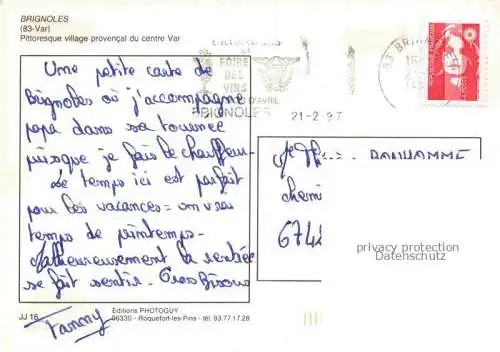 BRIGNOLES
(83-Var)
Pittoresque village provençal du centre Var
FOIRE
DES
VINS
D'AVRIL
BRIGNOLES
21-2-97
83 BRIGN
Une petite carte de
Brignoles où j'accompagne
papa dans sa tournée
puisque je fais le chauffeur.
Le temps ici est parfait
pour les vacances = un vrai
temps de printemps.
Malheureusement la rentrée
se fait sentir. Gros Bisous
Fanny
chemi
6742
privacy protection
Datenschutz
JJ 16
Editions PHOTOGUY
06330 - Roquefort-les-Pins - tél. 93.77.17.28